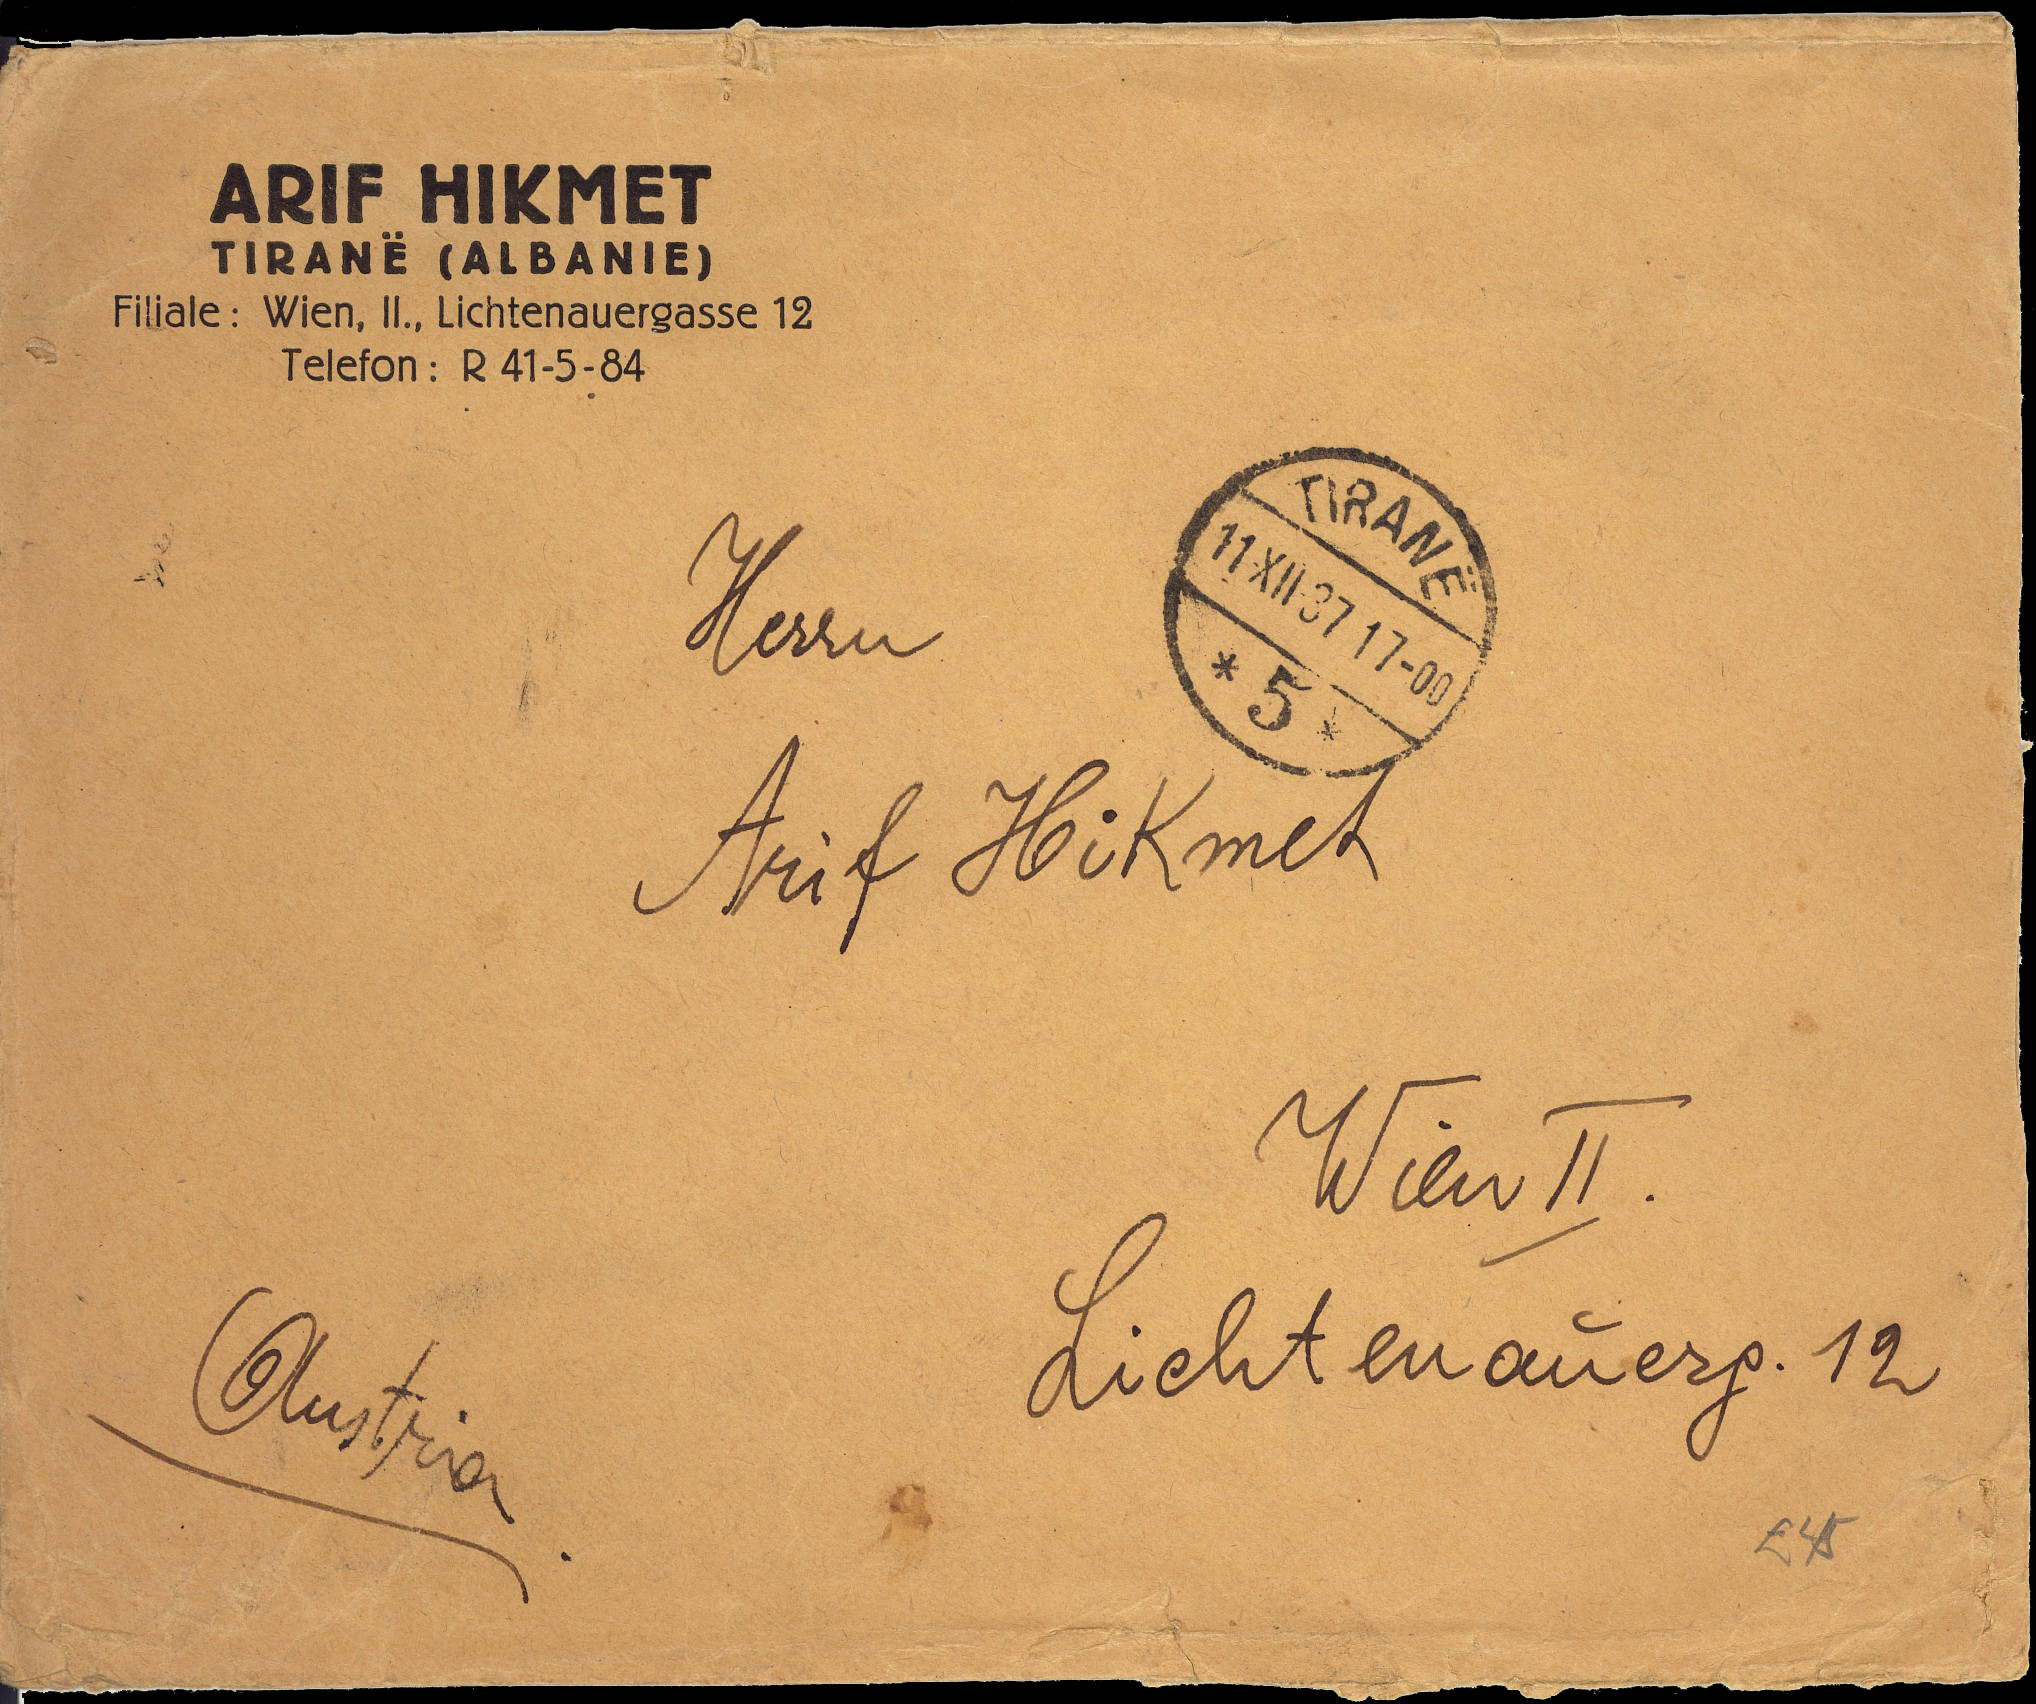 ARIF HIKMET
TIRANË (ALBANIE)
Filiale: Wien, II., Lichtenauergasse 12
Telefon: R 41-5-84
TIRANË
11·XII·37 17-00
* 5 *
Herrn
Arif Hikmet
Wien II.
Lichtenauerg. 12
Austria
£45